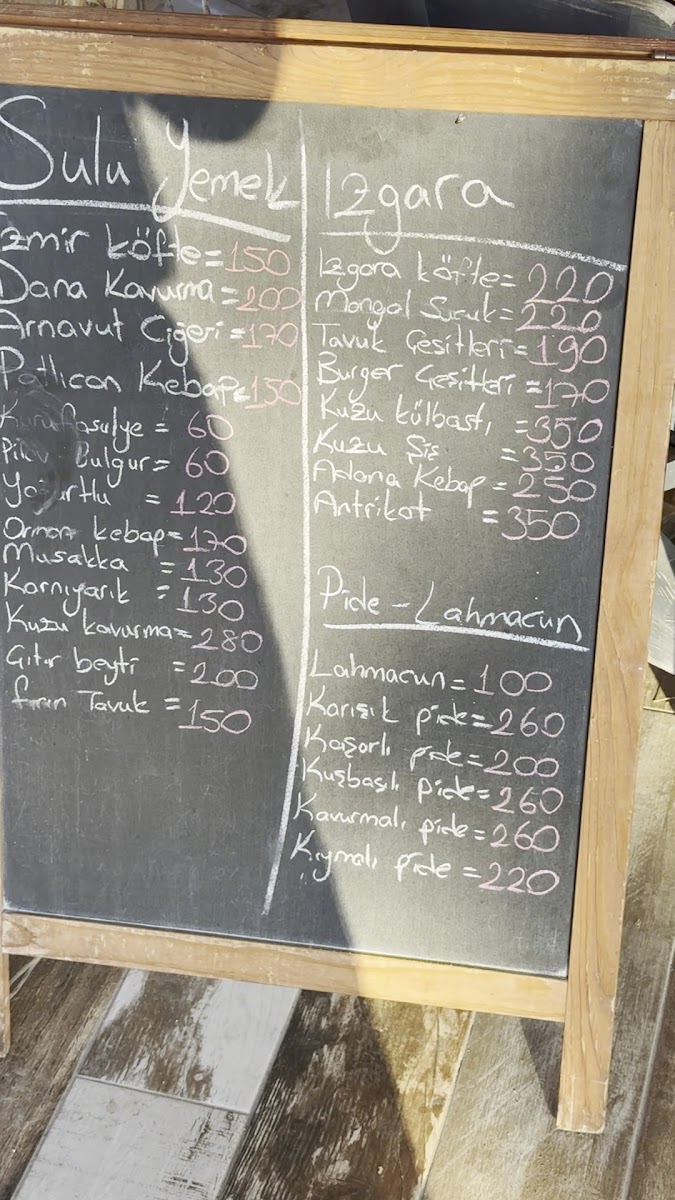 Sulu Yemek
İzmir köfte = 150
Dana Kavurma = 200
Arnavut Ciğeri = 170
Patlıcan Kebap = 150
Kuru fasulye = 60
Pilav Bulgur = 60
Yoğurtlu = 120
Orman kebap = 170
Musakka = 130
Karnıyarık = 130
Kuzu kavurma = 280
Çıtır beyti = 200
fırın Tavuk = 150
Izgara
Izgara köfte = 220
Mangal Sucuk = 220
Tavuk Çeşitleri = 190
Burger Çeşitleri = 170
Kuzu külbastı = 350
Kuzu Şiş = 350
Adana Kebap = 250
Antrikot = 350
Pide - Lahmacun
Lahmacun = 100
Karışık pide = 260
Kaşarlı pide = 200
Kuşbaşılı pide = 260
Kavurmalı pide = 260
Kıymalı pide = 220